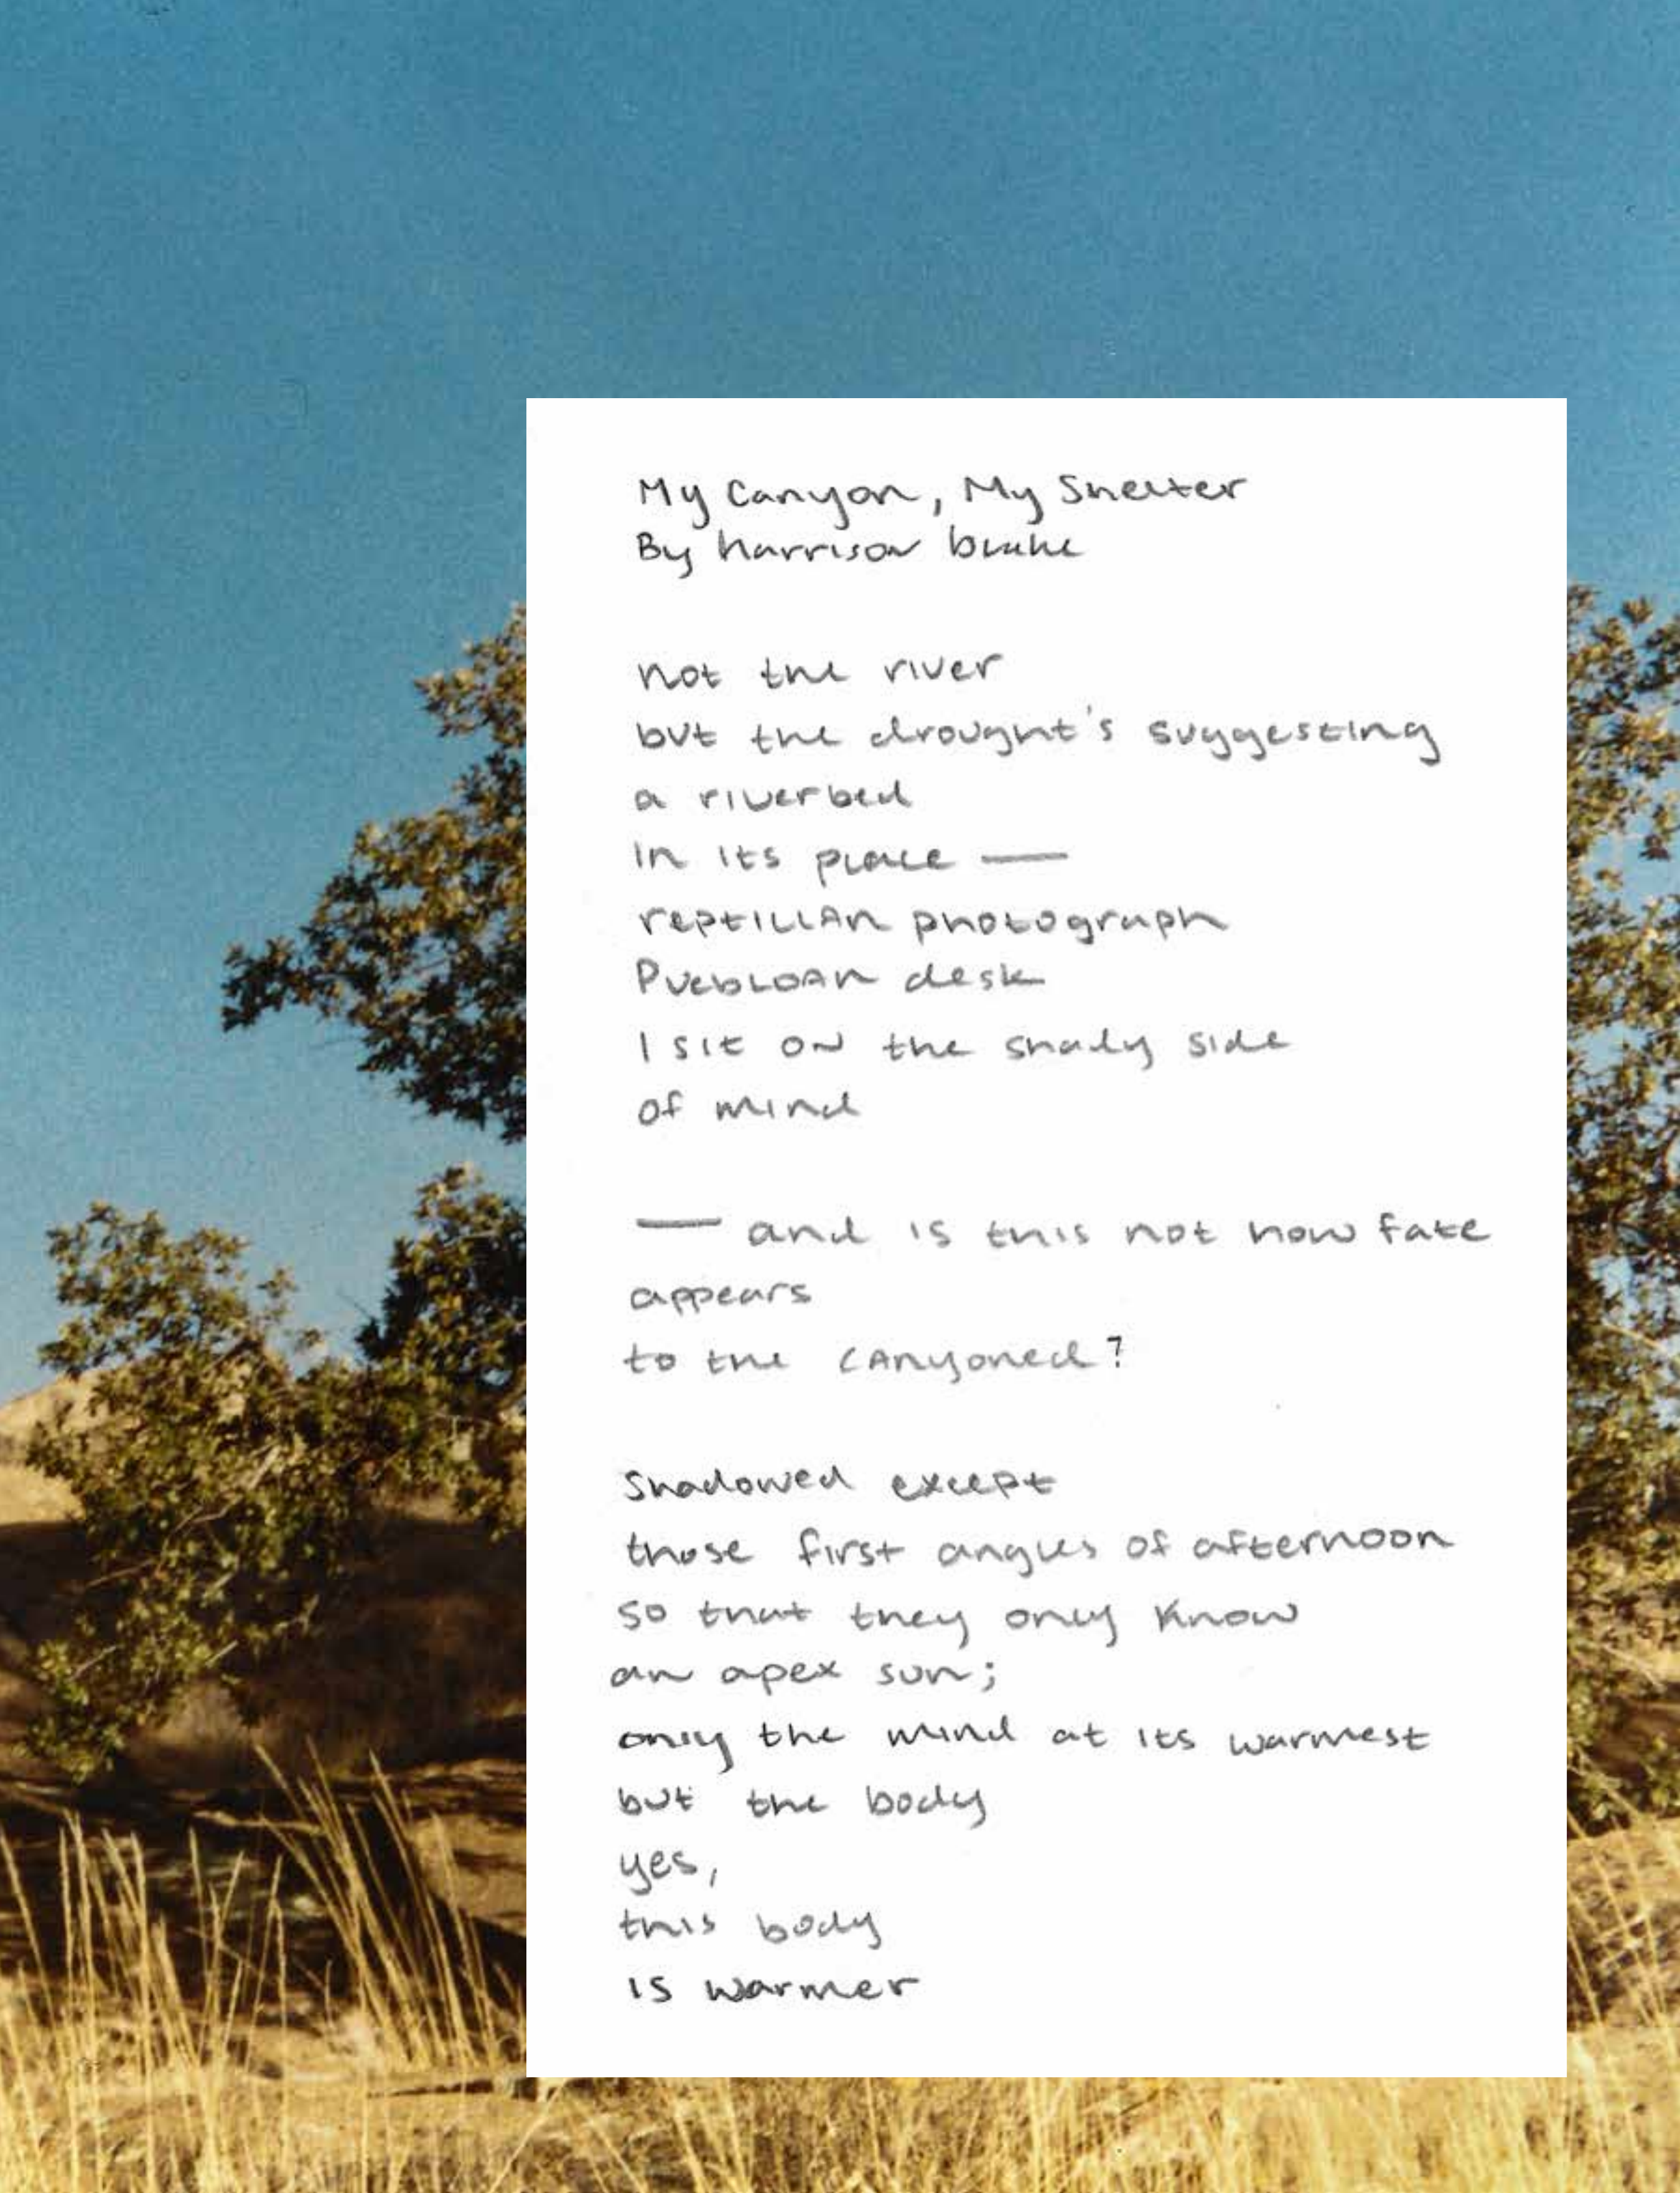 My Canyon, My Shelter
By harrison blake
not the river
but the drought's suggesting
a riverbed
in its place —
reptilian photograph
Puebloan desk
I sit on the shady side
of mind
— and is this not how fate
appears
to the canyoned?
Shadowed except
those first angles of afternoon
so that they only know
an apex sun;
only the mind at its warmest
but the body
yes,
this body
is warmer